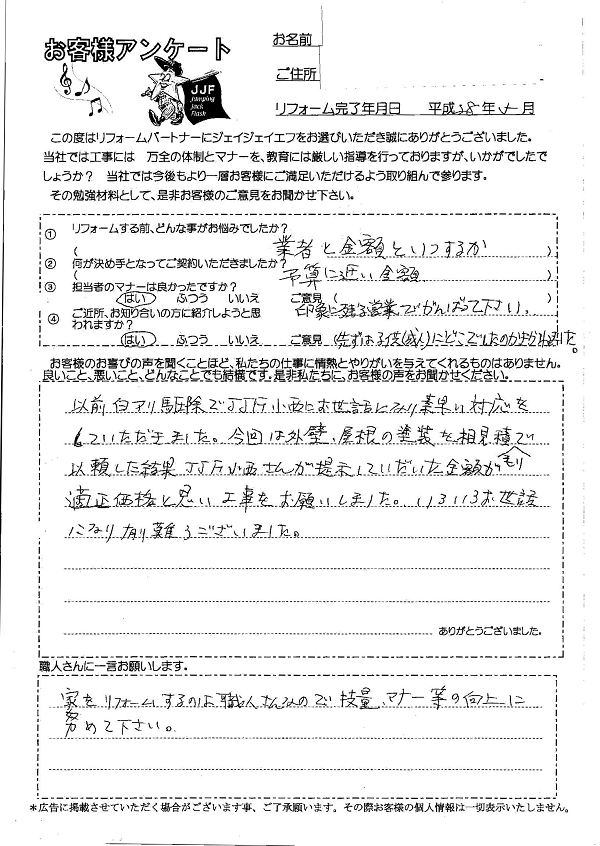 お客様アンケート
JJF
Jumping
Jack
Flash
お名前
ご住所
リフォーム完了年月日 平成28年 月
この度はリフォームパートナーにジェイジェイエフをお選びいただき誠にありがとうございました。
当社では工事には 万全の体制とマナーを、教育には厳しい指導を行っておりますが、いかがでしたで
しょうか? 当社では今後もより一層お客様にご満足いただけるよう取り組んで参ります。
その勉強材料として、是非お客様のご意見をお聞かせ下さい。
① リフォームする前、どんな事がお悩みでしたか?
( 業者と金額といつするか )
② 何が決め手となってご契約いただきましたか?
( 予算に近い金額 )
③ 担当者のマナーは良かったですか?
はい ふつう いいえ ご意見( 印象に残る営業でがんばって下さい。 )
④ ご近所、お知り合いの方に紹介しようと思
われますか?
はい ふつう いいえ ご意見(
お客様のお喜びの声を聞くことほど、私たちの仕事に情熱とやりがいを与えてくれるものはありません。
良いこと、悪いこと、どんなことでも結構です。是非私たちに、お客様の声をお聞かせください。
以前白アリ駆除でJJF小西にお世話になり素早い対応を
していただきました。今回は外壁、屋根の塗装を相見積で
以頼した結果JJF小西さんが提示していだいた金額が
適正価格と思い工事をお願いしました。いろいろお世話
になり有難うございました。
ありがとうございました。
職人さんに一言お願いします。
家をリフォームするのは職人さんなので、技量、マナー等の向上に
努めて下さい。
*広告に掲載させていただく場合がございます事、ご了承願います。その際お客様の個人情報は一切表示いたしません。